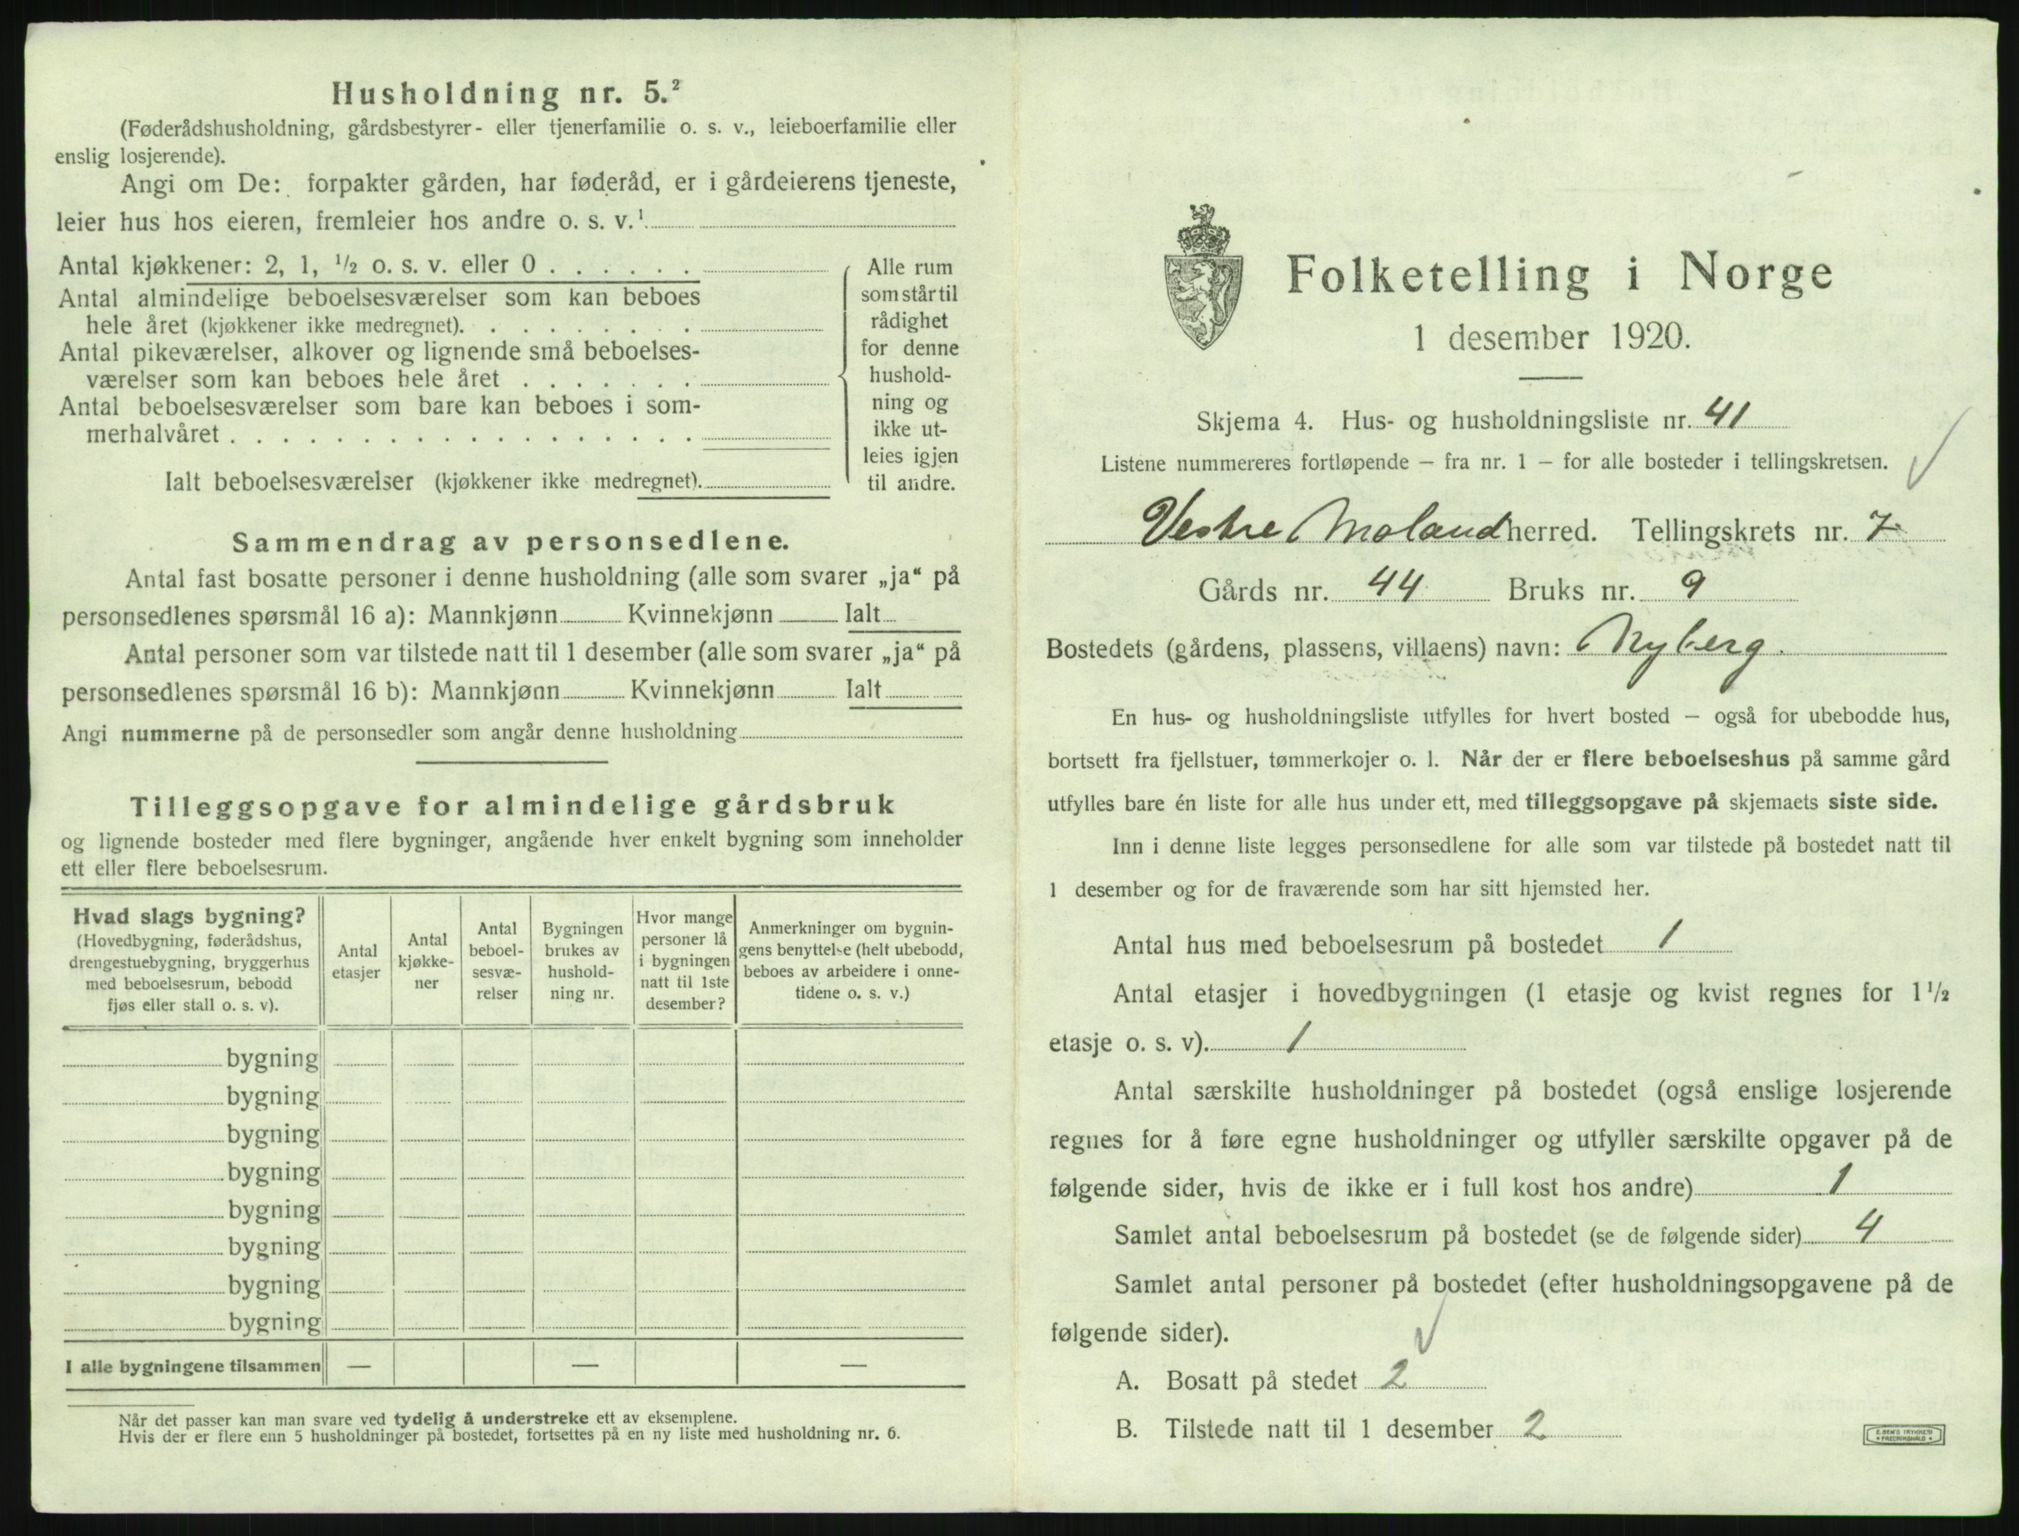 Husholdning nr. 5.²
(Føderådshusholdning, gårdsbestyrer- eller tjenerfamilie o. s. v., leieboerfamilie eller
enslig losjerende).
Angi om De: forpakter gården, har føderåd, er i gårdeierens tjeneste,
leier hus hos eieren, fremleier hos andre o. s. v.¹
Antal kjøkkener: 2, 1, ½ o. s. v. eller 0 . . . . . .
Antal almindelige beboelsesværelser som kan beboes
hele året (kjøkkener ikke medregnet). . . . . . . . .
Antal pikeværelser, alkover og lignende små beboelses-
værelser som kan beboes hele året . . . . . . .
Antal beboelsesværelser som bare kan beboes i som-
merhalvåret . . . . . . . . . . . . . . . . . .
Ialt beboelsesværelser (kjøkkener ikke medregnet).
Alle rum
som står til
rådighet
for denne
hushold-
ning og
ikke ut-
leies igjen
til andre.
Sammendrag av personsedlene.
Antal fast bosatte personer i denne husholdning (alle som svarer „ja“ på
personsedlenes spørsmål 16 a): Mannkjønn Kvinnekjønn Ialt
Antal personer som var tilstede natt til 1 desember (alle som svarer „ja“ på
personsedlenes spørsmål 16 b): Mannkjønn Kvinnekjønn Ialt
Angi nummerne på de personsedler som angår denne husholdning
Tilleggsopgave for almindelige gårdsbruk
og lignende bosteder med flere bygninger, angående hver enkelt bygning som inneholder
ett eller flere beboelsesrum.
Hvad slags bygning?
(Hovedbygning, føderådshus,
drengestuebygning, bryggerhus
med beboelsesrum, bebodd
fjøs eller stall o. s. v).
Antal
etasjer
Antal
kjøkke-
ner
Antal
beboel-
sesvæ-
relser
Bygningen
brukes av
hushold-
ning nr.
Hvor mange
personer lå
i bygningen
natt til 1ste
desember?
Anmerkninger om bygnin-
gens benyttelse (helt ubebodd,
beboes av arbeidere i onne-
tidene o. s. v.)
bygning
bygning
bygning
bygning
bygning
bygning
bygning
bygning
I alle bygningene tilsammen — — —
Når det passer kan man svare ved tydelig å understreke ett av eksemplene.
Hvis der er flere enn 5 husholdninger på bostedet, fortsettes på en ny liste med husholdning nr. 6.
Folketelling i Norge
1 desember 1920.
Skjema 4. Hus- og husholdningsliste nr. 41
Listene nummereres fortløpende – fra nr. 1 – for alle bosteder i tellingskretsen.
Vestre Moland herred. Tellingskrets nr. 7
Gårds nr. 44 Bruks nr. 9
Bostedets (gårdens, plassens, villaens) navn: Nyberg.
En hus- og husholdningsliste utfylles for hvert bosted – også for ubebodde hus,
bortsett fra fjellstuer, tømmerkojer o. l. Når der er flere beboelseshus på samme gård
utfylles bare én liste for alle hus under ett, med tilleggsopgave på skjemaets siste side.
Inn i denne liste legges personsedlene for alle som var tilstede på bostedet natt til
1 desember og for de fraværende som har sitt hjemsted her.
Antal hus med beboelsesrum på bostedet 1
Antal etasjer i hovedbygningen (1 etasje og kvist regnes for 1½
etasje o. s. v). 1
Antal særskilte husholdninger på bostedet (også enslige losjerende
regnes for å føre egne husholdninger og utfyller særskilte opgaver på de
følgende sider, hvis de ikke er i full kost hos andre) 1
Samlet antal beboelsesrum på bostedet (se de følgende sider) 4
Samlet antal personer på bostedet (efter husholdningsopgavene på de
følgende sider).
A. Bosatt på stedet 2
B. Tilstede natt til 1 desember 2